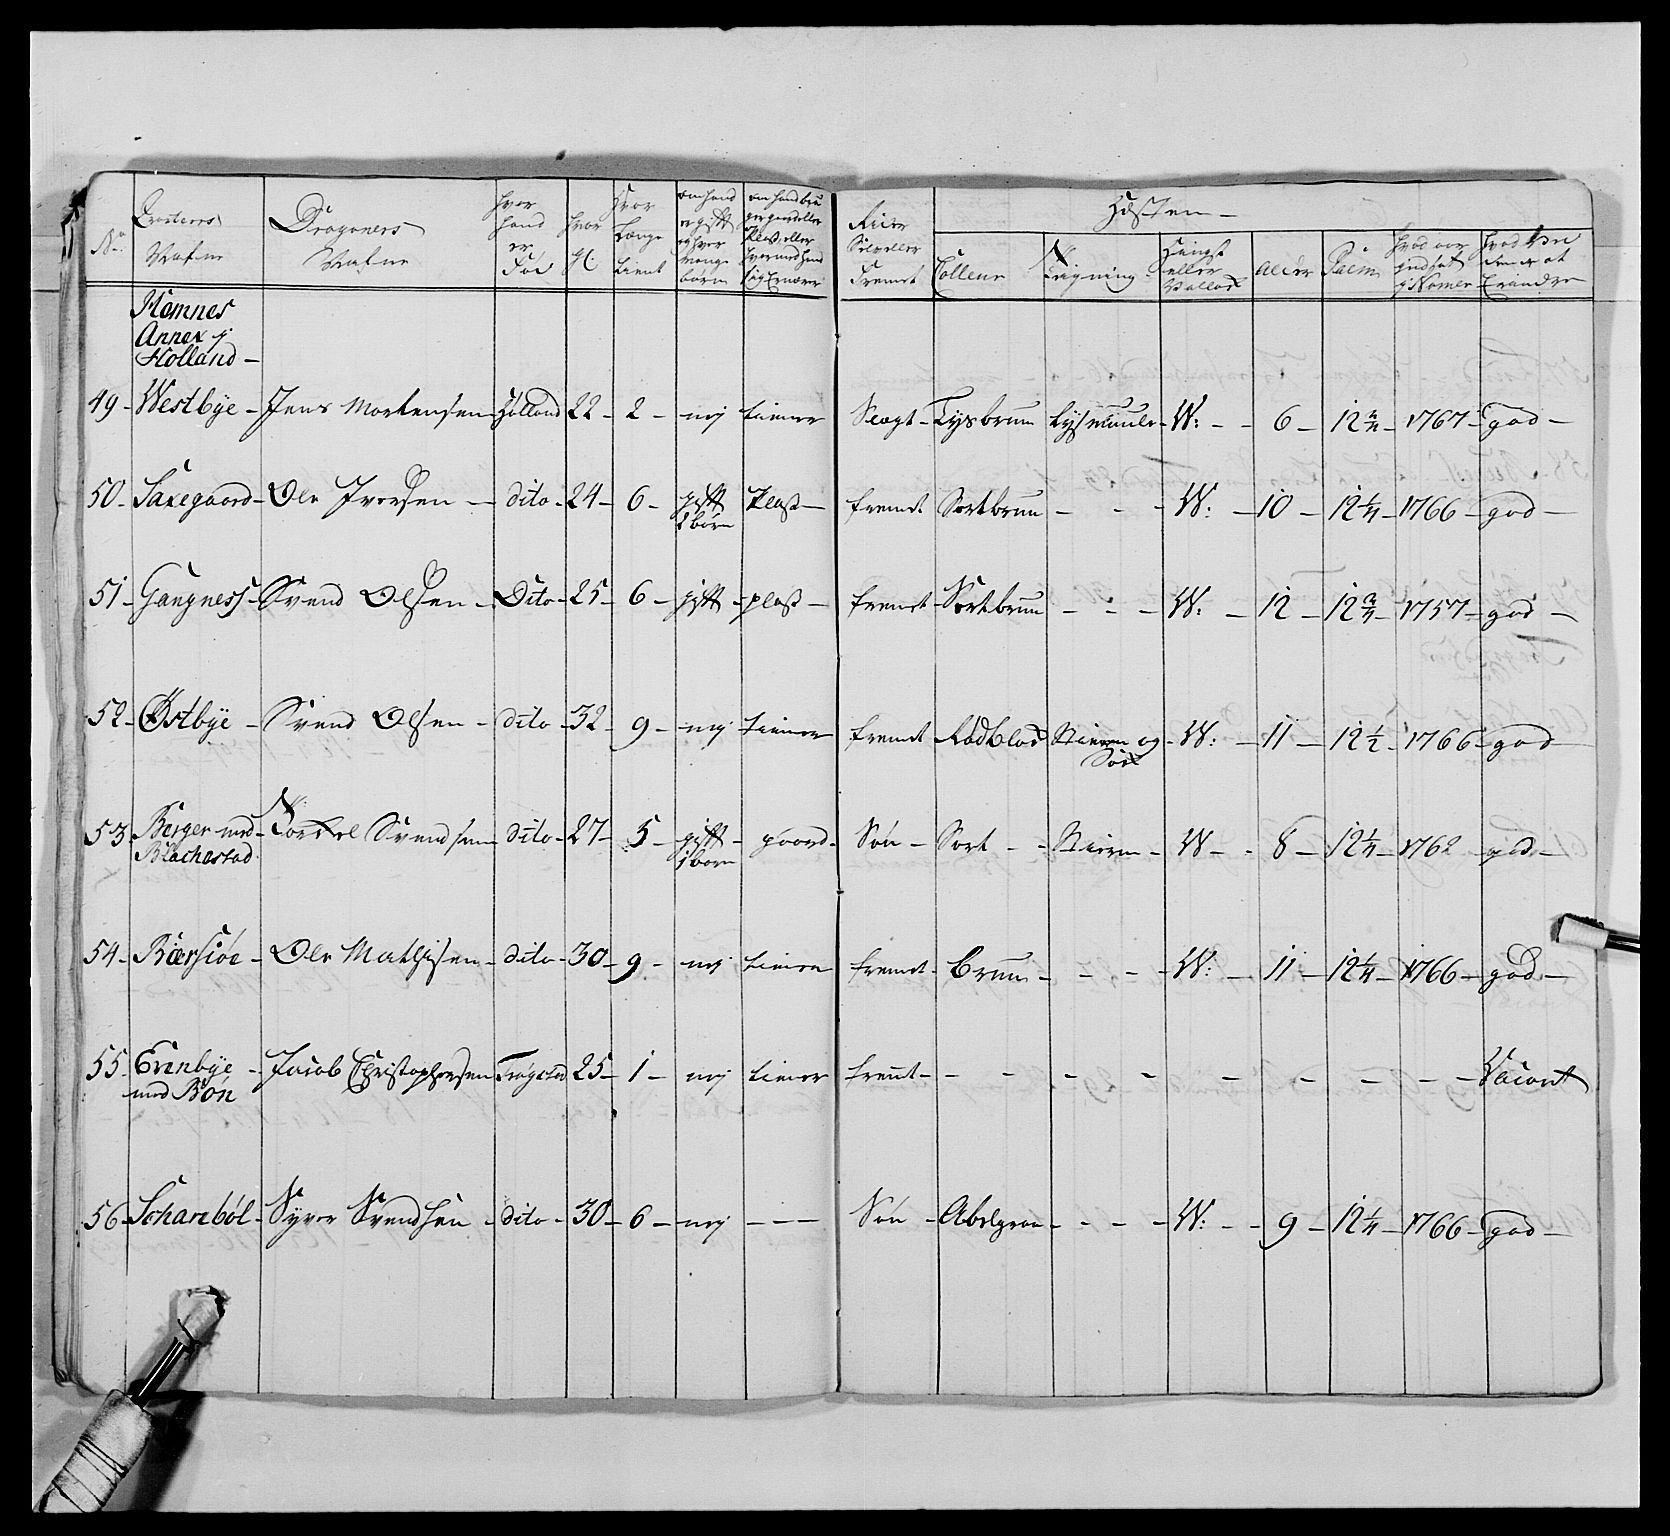 No: Qvarteers Nafne Dragoners Nafne hvor hand er Fød hvor gl: Hvor Længe tient om hand er gift og hvor mange børn om hand bruger gaard eller Plads eller hvormed hand sig Ernærer Reier Selv eller Fremt Hæsten
Colleur Tegning Hingst eller Vallak Alder Palm hvad aar indsat i Nomer hvad ved den er at Erindre
Hemnes
Annex i
Holland –
49 – Westbye – Jens Mortensen Holland 22 – 2 – nej tiener Slegt – Lysbruun Lys muule – W: – – 6 – 12 2/4 – 1767 – god –
50 – Saxegaard – Ole Iversen – dito – 24 – 6 – gift 2 børn Plass – fremt Sortbruun – – – W: – 10 – 12 1/4 – 1766 – god –
51 – Gangness – Svend Olsen – Dito – 25 – 6 – gift – plass – fremt – Sortbruun – – – W: – 12 – 12 3/4 – 1757 – god –
52 – Østbye – Svend Olsen – dito – 32 – 9 – nej tiener fremt Rødblad Stiern og – W: – 11 – 12 1/2 – 1766 – god
53 Berger med Blachestad Torkel Svendsen dito – 27 – 5 – gift – 1 børn gaard – Søn – Sort – – Stiern – W – – 8 – 12 1/4 – 1762 – god –
54 – Bærsiøe – Ole Mathisen – dito – 30 – 9 – nej tiener fremt – bruun – – – – W: – 11 – 12 1/4 – 1766 – god –
55 – Grinbye med Bøn – Jacob Christophersen Trøgstad 25 – 1 – nej tiener fremt – – – – – – – – – – Vacant
56 – Scharebøl – Syver Svendsen – dito – 30 – 6 – nej – – – Søn – Abelgraa – – – – W: – – 9 – 12 1/4 – 1766 – god –